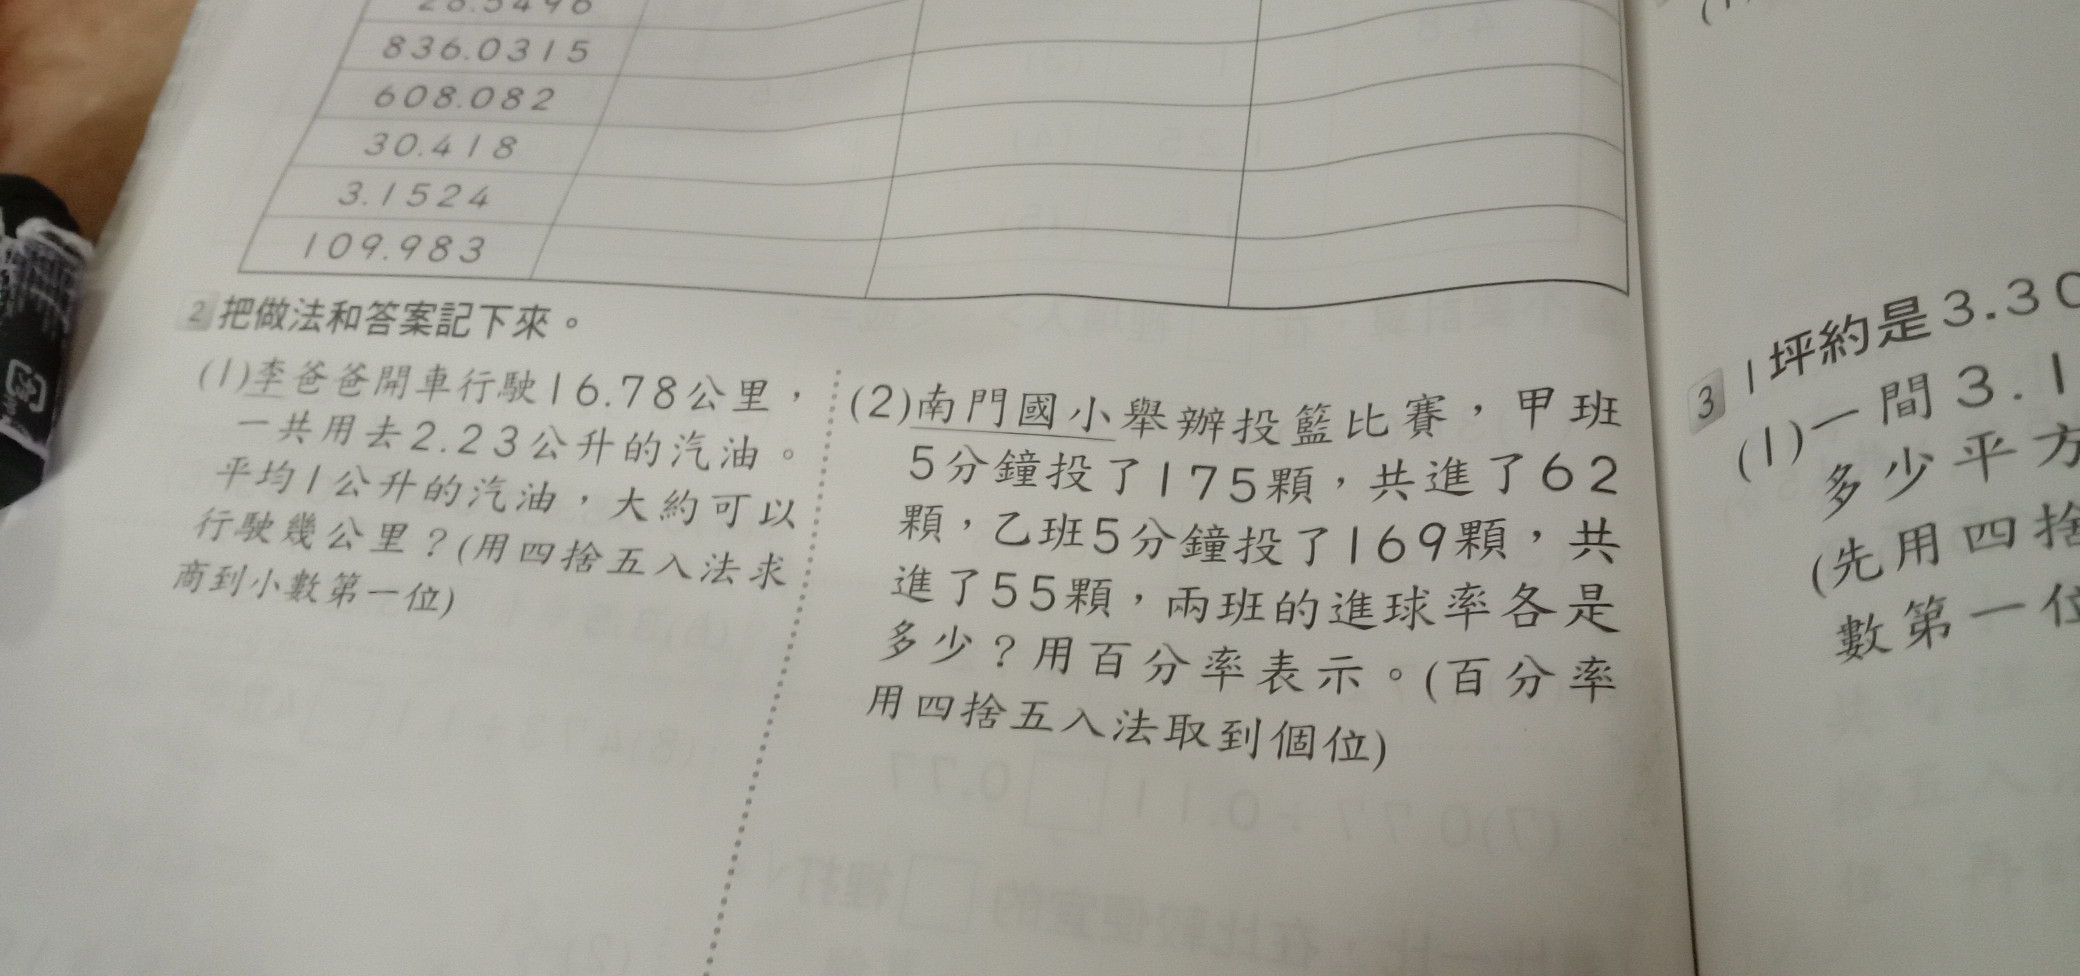 836.0315
608.082
30.418
3.1524
109.983
2 把做法和答案記下來。
(1)李爸爸開車行駛16.78公里，
一共用去2.23公升的汽油。
平均1公升的汽油，大約可以
行駛幾公里？(用四捨五入法求
商到小數第一位)
(2)南門國小舉辦投籃比賽，甲班
5分鐘投了175顆，共進了62
顆，乙班5分鐘投了169顆，共
進了55顆，兩班的進球率各是
多少？用百分率表示。(百分率
用四捨五入法取到個位)
3 1坪約是3.30
(1)一間3.1
多少平方
(先用四捨
數第一位